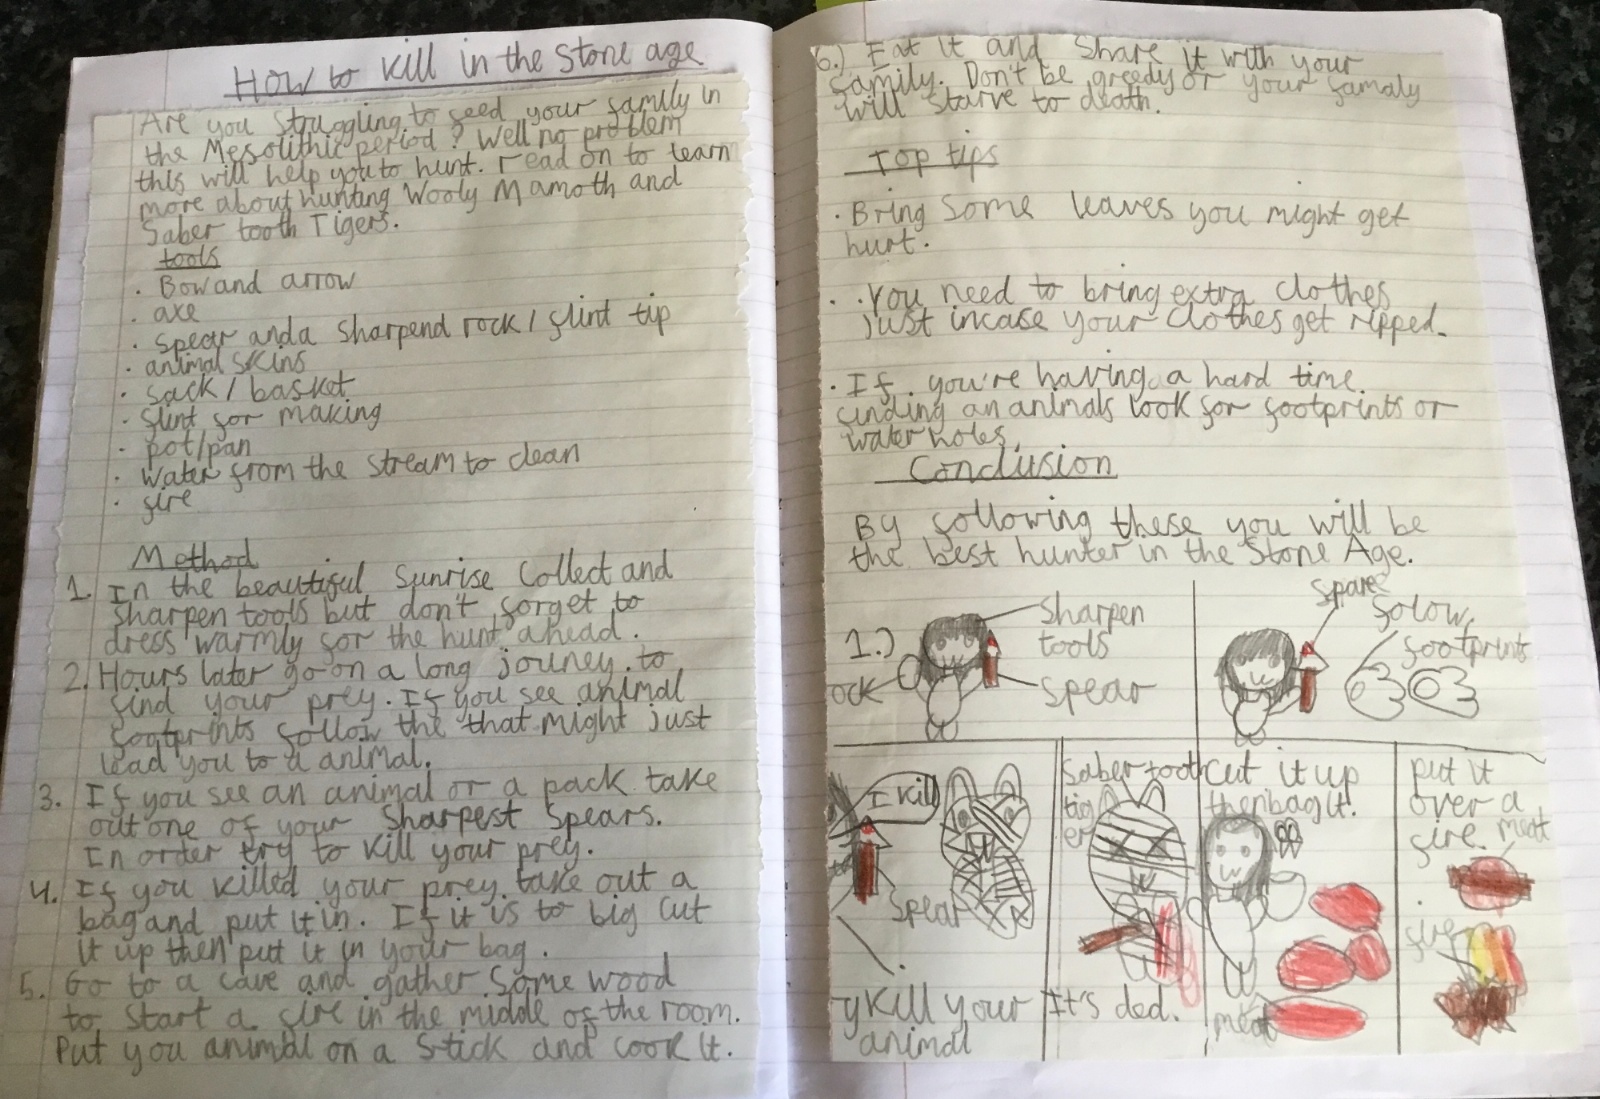 How to kill in the Stone age
Are you struggling to feed your family in
the Mesolithic period? Well no problem
this will help you to hunt. read on to learn
more about hunting Wooly Mamoth and
Saber tooth Tigers.
tools
· Bow and arrow
· axe
· spear and a sharpend rock / flint tip
· animal skins
· sack / basket
· flint for making
· pot/pan
· water from the stream to clean
· fire
Method
1. In the beautiful Sunrise Collect and
sharpen tools but don't forget to
dress warmly for the hunt ahead.
2. Hours later go on a long jouney to
find your prey. If you see animal
footprints follow the that might just
lead you to a animal.
3. If you see an animal or a pack take
out one of your Sharpest Spears.
In order try to kill your prey.
4. If you killed your prey take out a
bag and put it in. If it is to big cut
it up then put it in your bag.
5. Go to a cave and gather some wood
to start a fire in the middle of the room.
Put you animal on a stick and cook it.
6.) Eat it and Share it with your
family. Don't be greedy or your famaly
will starve to death.
Top tips
· Bring Some leaves you might get
hurt.
· You need to bring extra clothes
just incase your clothes get ripped.
· If you're having a hard time
finding an animals look for footprints or
water holes.
Conclusion
By following these you will be
the best hunter in the Stone Age.
1.)
Sharpen
tools
ock
spear
spare
folow
footprints
I kill
Spear
y kill your
animal
Saber tooth
tig
er
It's ded.
Cut it up
then bag it!
meat
put it
over a
fire.
meat
fire